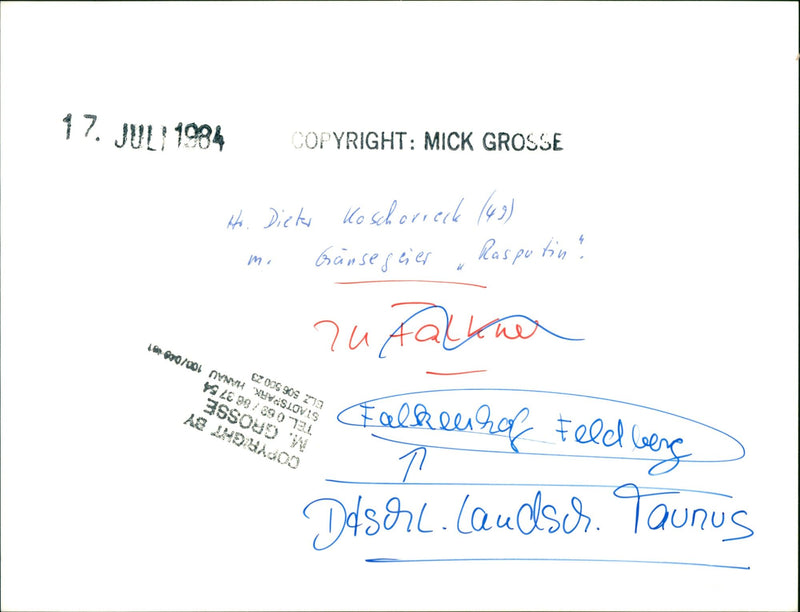 17. JULI 1984
COPYRIGHT: MICK GROSSE
Hr. Dieter Koschorreck (49)
m. Gänsegeier „Rasputin“.
zu Falkner
COPYRIGHT BY
M. GROSSE
TEL. 0 69 / 86 37 54
STADTSPARK. HANAU
BLZ 506 500 23
Falkenhof Feldberg
↑
Dtschl. Landsch. Taunus